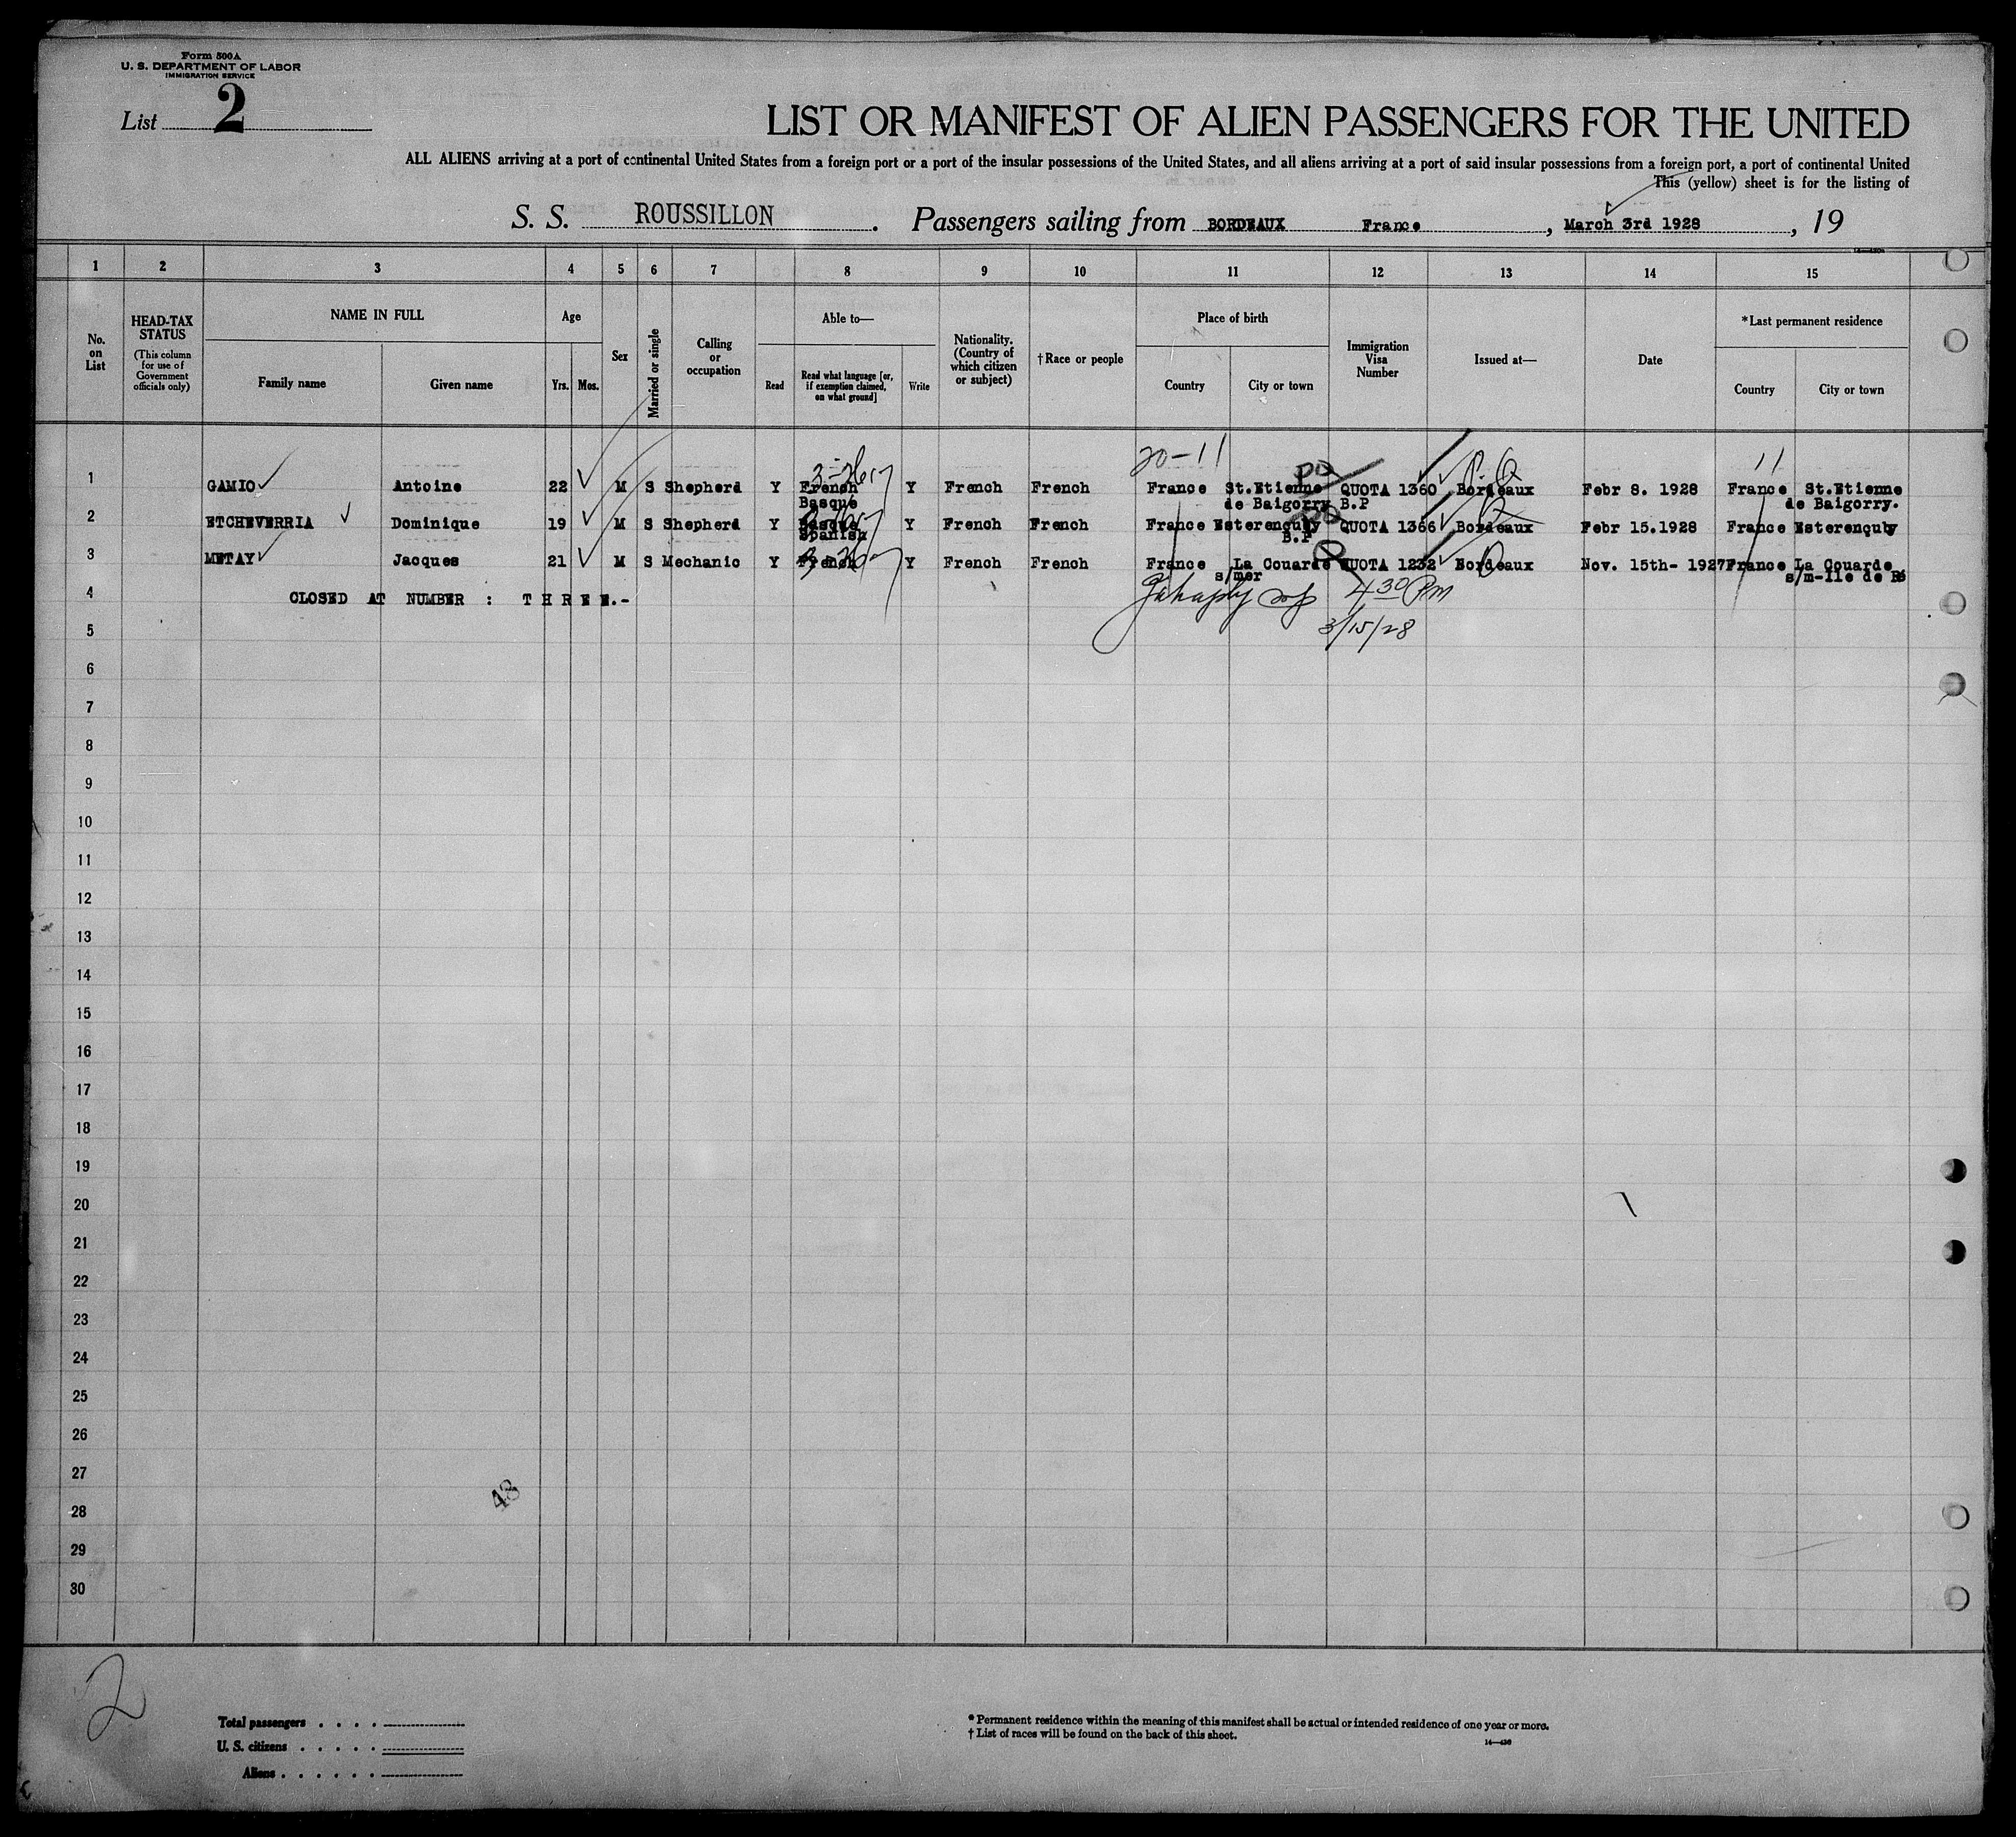 Form 500A
U. S. DEPARTMENT OF LABOR
IMMIGRATION SERVICE
List 2
LIST OR MANIFEST OF ALIEN PASSENGERS FOR THE UNITED
ALL ALIENS arriving at a port of continental United States from a foreign port or a port of the insular possessions of the United States, and all aliens arriving at a port of said insular possessions from a foreign port, a port of continental United
This (yellow) sheet is for the listing of
S. S. ROUSSILLON. Passengers sailing from BORDEAUX France, March 3rd 1928, 19
1 2 3 4 5 6 7 8 9 10 11 12 13 14 15
No. on List
HEAD-TAX STATUS (This column for use of Government officials only)
NAME IN FULL
Family name Given name
Age
Yrs. Mos.
Sex
Married or single
Calling or occupation
Able to—
Read
Read what language [or, if exemption claimed, on what ground]
Write
Nationality. (Country of which citizen or subject)
†Race or people
Place of birth
Country City or town
Immigration Visa Number
Issued at—
Date
*Last permanent residence
Country City or town
20-11 11
1 GAMIO Antoine 22 M S Shepherd Y French Y French French France St.Etienne QUOTA 1360 Bordeaux Febr 8. 1928 France St.Etienne
Basque de Baigorry B.P de Baigorry.
2 ETCHEVERRIA Dominique 19 M S Shepherd Y Basque Y French French France Esterençuby QUOTA 1366 Bordeaux Febr 15.1928 France Esterençuby
Spanish B.P
3 METAY Jacques 21 M S Mechanic Y French Y French French France La Couarde QUOTA 1232 Bordeaux Nov. 15th- 1927 France La Couarde
s/mer s/m-Ile de Ré
4 CLOSED AT NUMBER : T H R E E.-
4 30 Pm
3/15/28
5
6
7
8
9
10
11
12
13
14
15
16
17
18
19
20
21
22
23
24
25
26
27
28
29
30
48
2
Total passengers
U. S. citizens
Aliens
* Permanent residence within the meaning of this manifest shall be actual or intended residence of one year or more.
† List of races will be found on the back of this sheet.